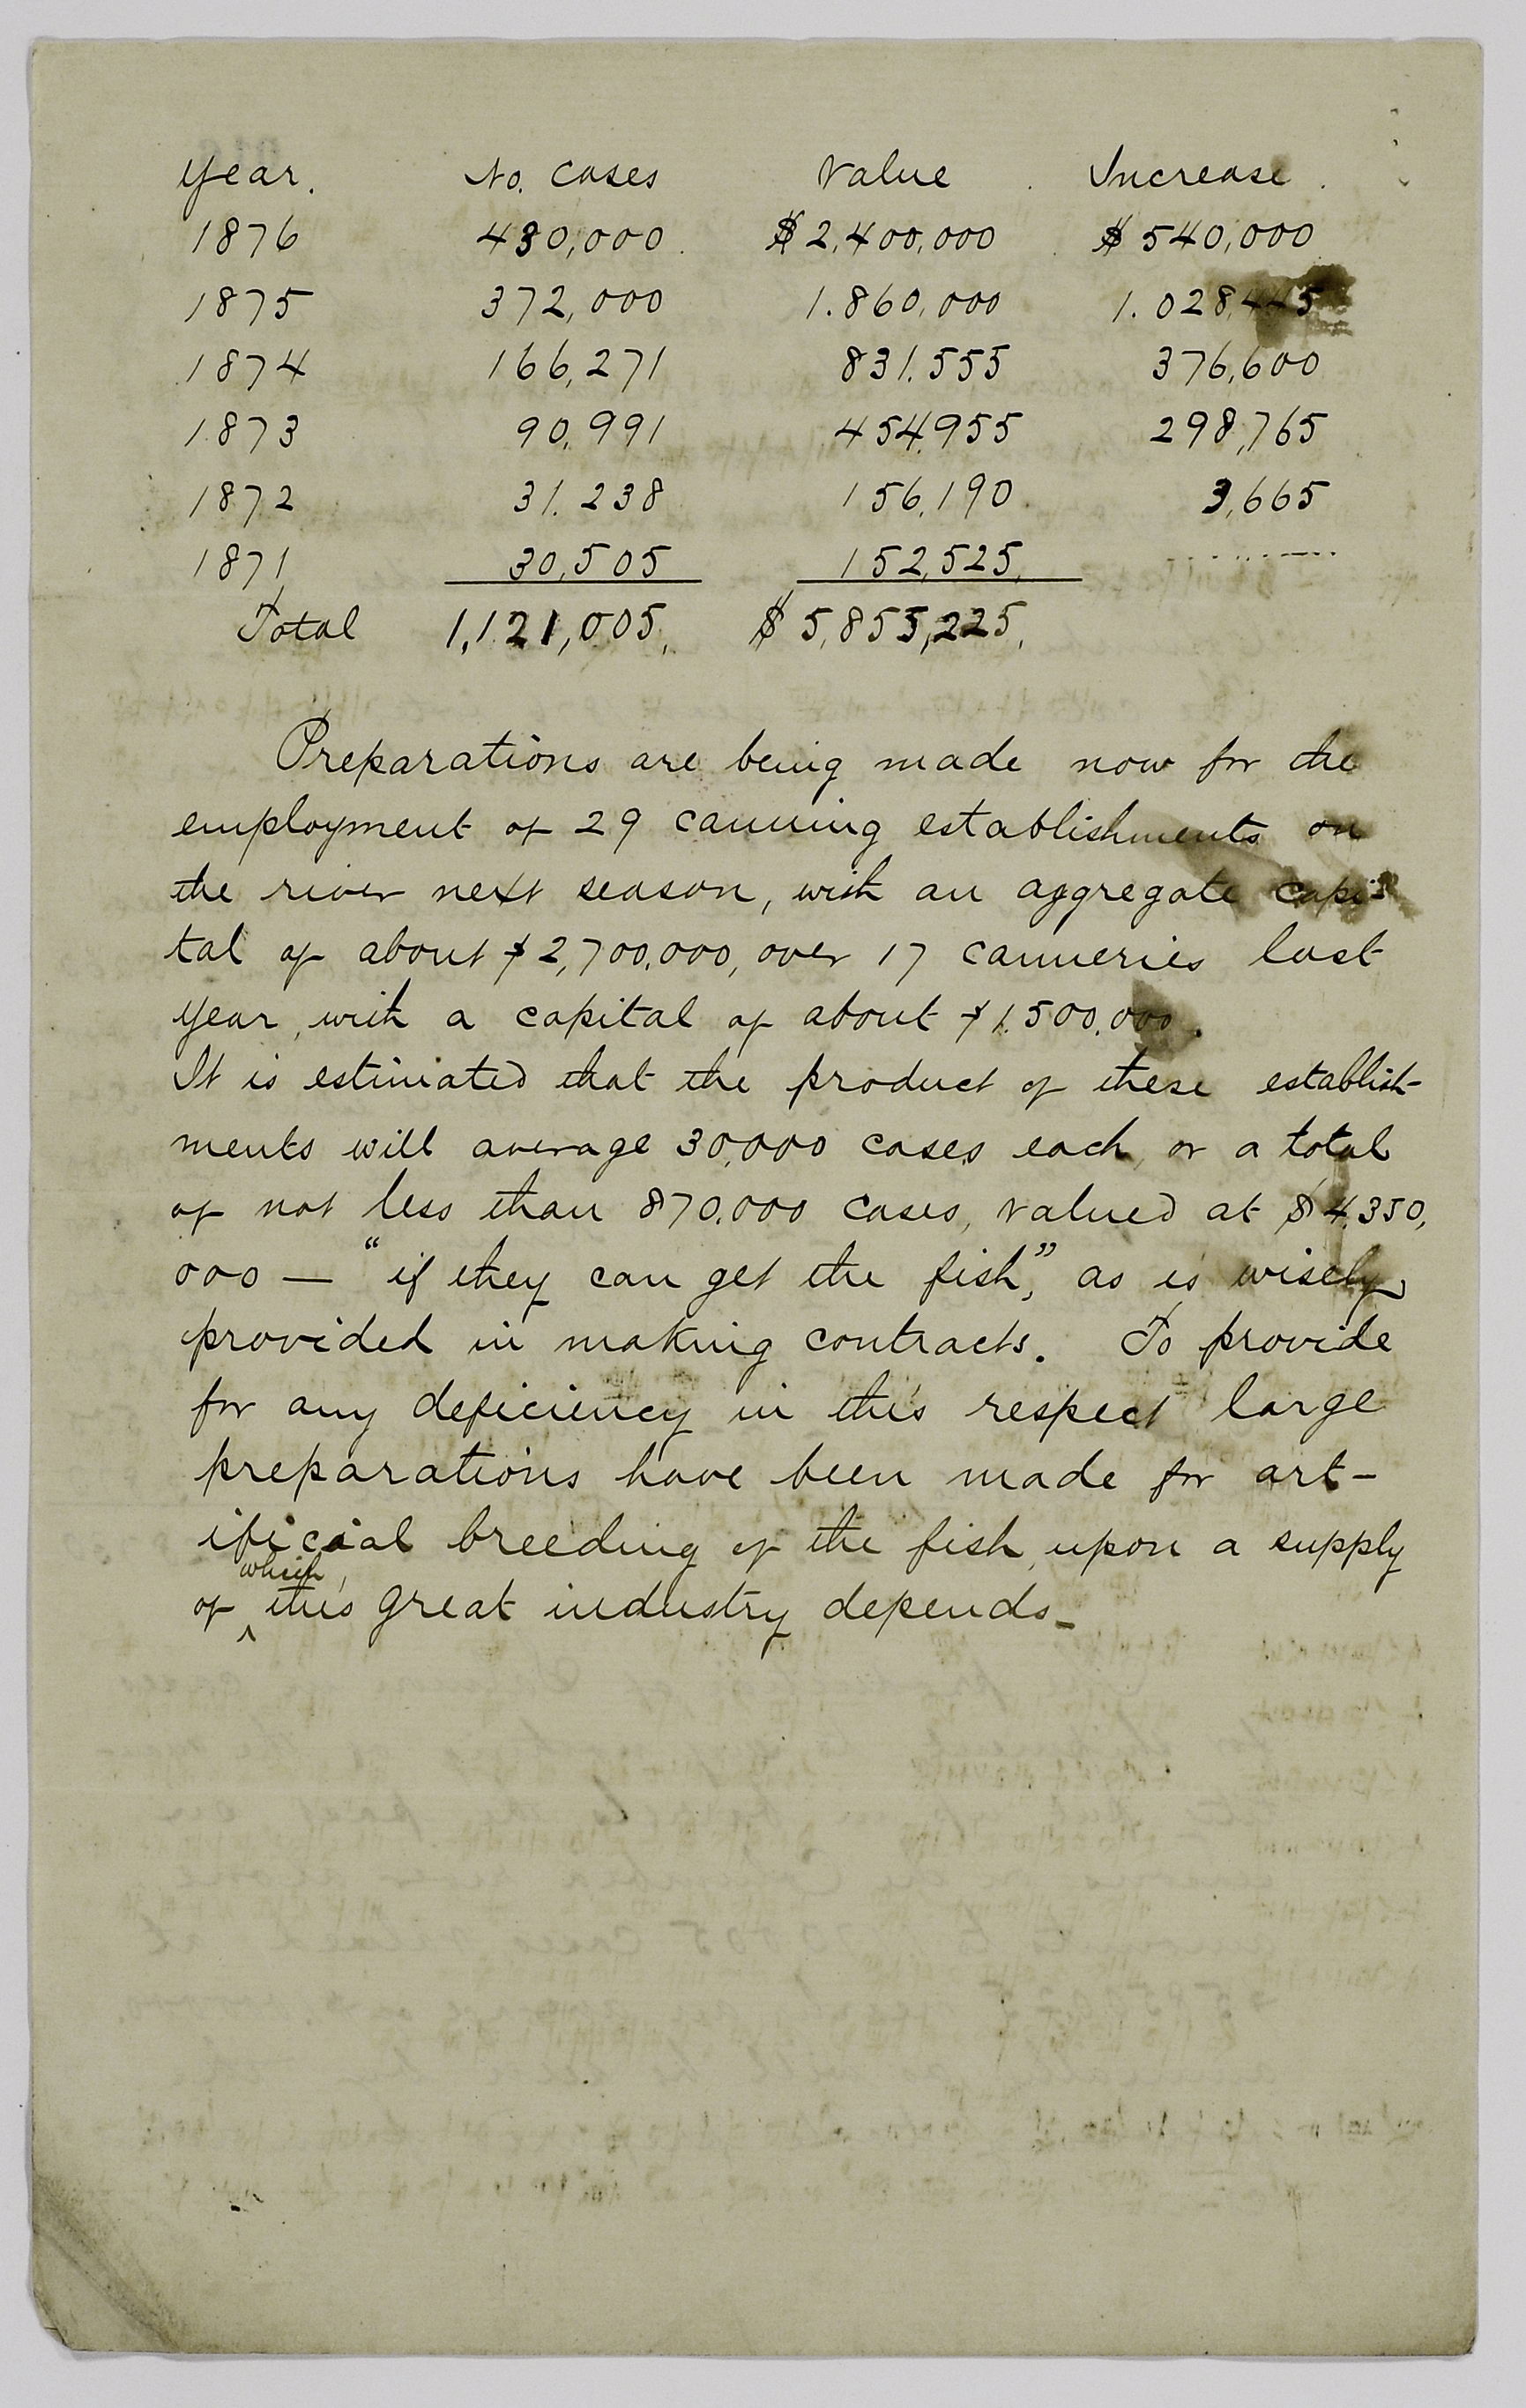 Year. No. Cases Value Increase
1876 430,000 $2,400,000 $540,000
1875 372,000 1.860,000 1.028,445
1874 166,271 831.555 376,600
1873 90,991 454,955 298,765
1872 31.238 156,190 3,665
1871 30,505 152,525,
Total 1,121,005, $5,855,225,
Preparations are being made now for the
employment of 29 canning establishments on
the river next season, with an aggregate capi-
tal of about $2,700,000, over 17 canneries last
year, with a capital of about $1.500,000.
It is estimated that the product of these establish-
ments will average 30,000 cases each, or a total
of not less than 870,000 cases, valued at $4,350,
000 — "if they can get the fish," as is wisely
provided in making contracts. To provide
for any deficiency in this respect large
preparations have been made for art-
ificial breeding of the fish, upon a supply
of which, this great industry depends_